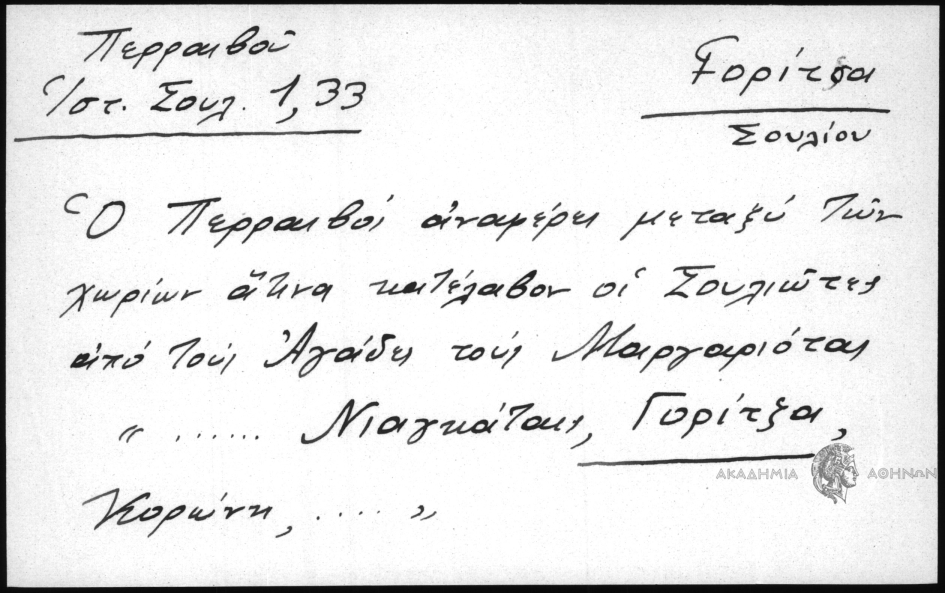 Περραιβοῦ
Ἱστ. Σουλ. 1,33
Γορίτσα
Σουλίου
Ὁ Περραιβός ἀναφέρει μεταξύ τῶν
χωρίων ἅτινα κατέλαβον οἱ Σουλιῶτες
ἀπό τούς Ἀγάδες τούς Μαργαριότας
" ...... Νιαγκάταις, Γορίτζα,
ΑΚΑΔΗΜΙΑ ΑΘΗΝΩΝ
Κορώνη, .... "